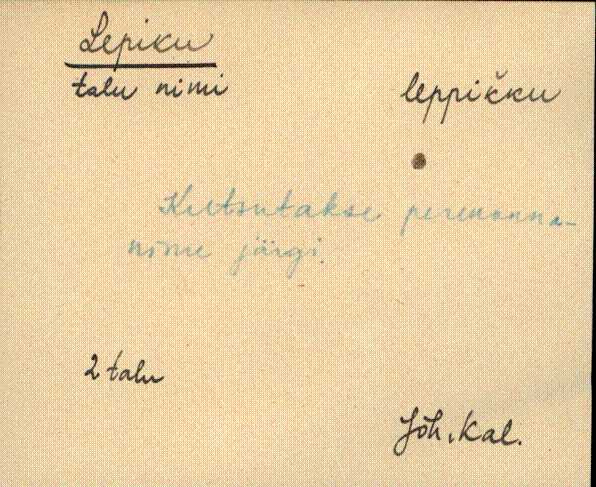 Lepiku
talu nimi
leppikku
Kutsutakse perekonna-
nime järgi.
2 talu
Jõh, Kal.